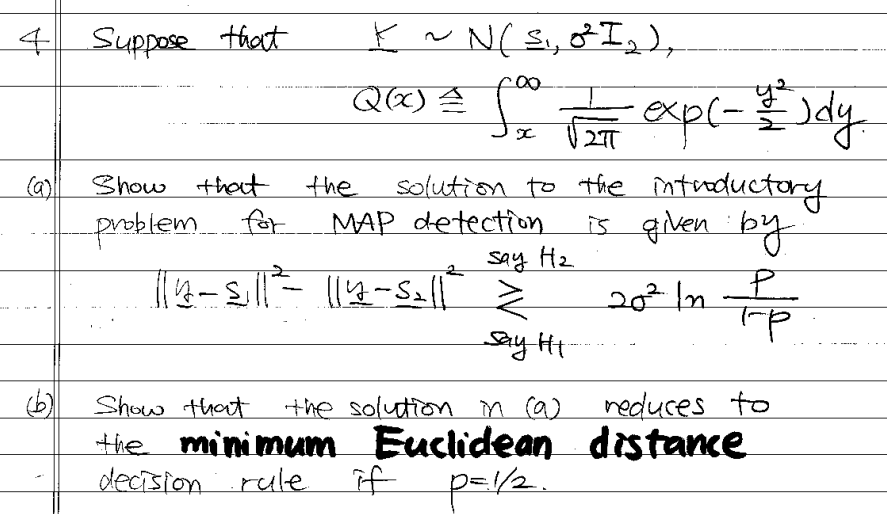 4 Suppose that Y ~ N( s₁, σ²I₂ ),
Q(x) ≜ ∫ₓ^∞ 1/√2π exp(- y²/2 )dy.
(a) Show that the solution to the introductory
problem for MAP detection is given by
say H₂
||y-s₁||² - ||y-s₂||² ≷ 2σ² ln p/1-p
say H₁
(b) Show that the solution in (a) reduces to
the minimum Euclidean distance
decision rule if p=1/2.